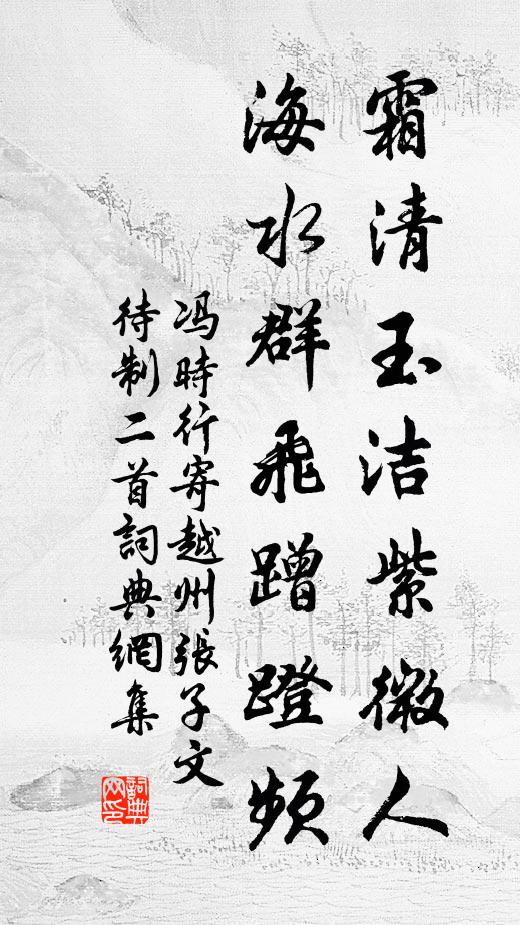 霜清玉洁紫微人
海水群飛蹭蹬频
冯時行寄越州張子文
待制二首詞典網集
詞典網印